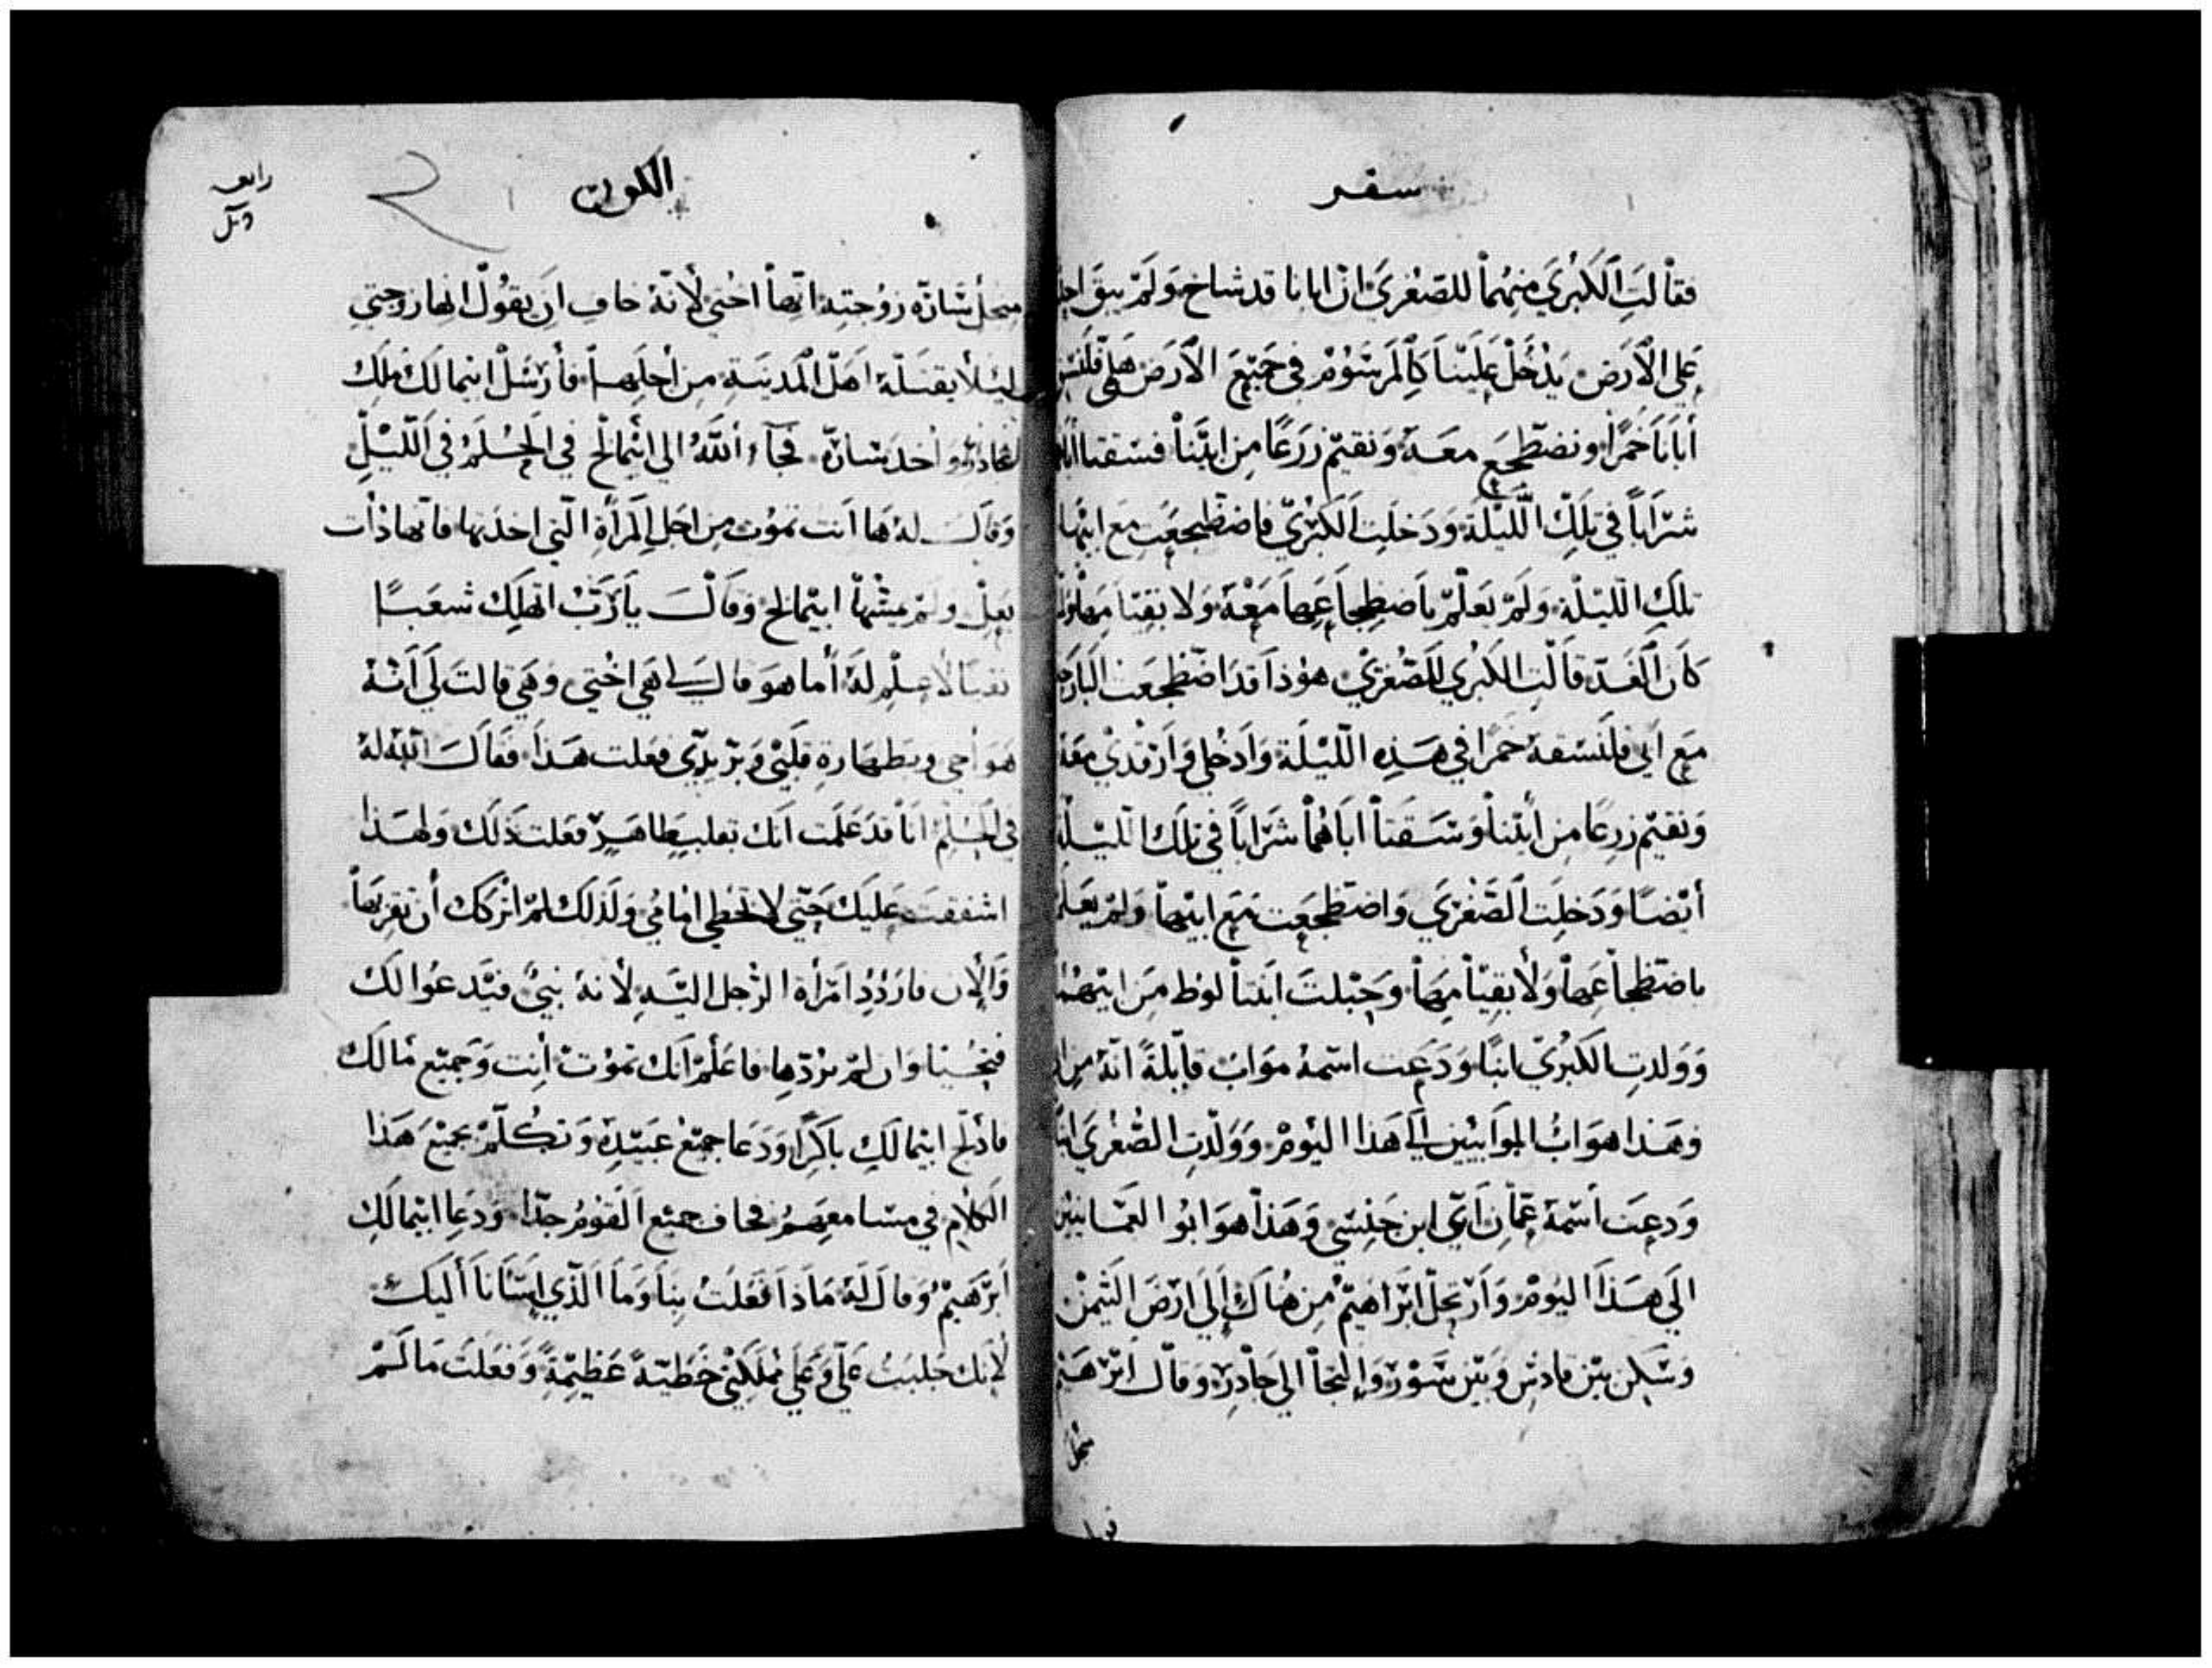 سفر
فقالت الكبري منهما للصغري ان ابانا قد شاخ ولم يبق احد
علي الارض يدخل علينا كالمرسوم في جميع الارض هلمي فلنسق
أبانا خمرا ونضطجع معه ونقيم زرعا من ابينا فسقتا اباهما
شرابا في تلك الليلة ودخلت الكبري فاضطجعت مع ابيها
تلك الليلة ولم يعلم باضطجاعها معه ولا بقيامها ولما
كان الغد قالت الكبري للصغري هوذا قد اضطجعت البارحة
مع ابي فلنسقه خمرا في هذه الليلة وادخلي وارقدي معه
ونقيم زرعا من أبينا وسقتا اباهما شرابا في تلك الليلة
أيضا ودخلت الصغري واضطجعت مع ابيها ولم يعلم
باضطجاعها ولا بقيامها وحبلت ابنتا لوط من ابيهما
وولدت الكبري ابنا ودعت اسمه مواب قايلة انه من ابي
وهذا هو اب الموابيين الي هذا اليوم وولدت الصغري ابنا
ودعت أسمه عمان اي ابن جنسي وهذا هو ابوا العمانيين
الي هذا اليوم وارتحل ابراهيم من هناك الي ارض التيمن
وسكن بين قادش وبين سور والتجأ الي جادر وقال ابرهيم
من أجل
الكون
رابعه
من أجل ساره زوجته انها اختي لأنه خاف ان يقول انها زوجتي
ليلا يقتله اهل المدينة من أجلها فأرسل ابيمالك ملك
جادر وأخذ ساره فجاء الله الي ابيمالخ في الحلم في الليل
وقال له ها انت تموت من اجل المرأة التي اخذتها فانها ذات
بعل ولم يمسها ابيمالخ وقال يا رب اتهلك شعبا
نقيا لا علم له أما هو قال لي هي اختي وهي قالت لي انه
هو أخي وبطهارة قلبي وبر يدي فعلت هذا فقال الله له
في الحلم انا قد علمت انك بقلب طاهر فعلت ذلك ولهذا
اشفقت عليك حتي لا تخطي امامي ولذلك لم اتركك أن تقربها
والان فاردد امرأة الرجل اليه لأنه نبي فيدعوا لك
فتحيا وان لم تردها فاعلم انك تموت أنت وجميع مالك
فأدلج ابيمالك باكرا ودعا جميع عبيده وتكلم بجميع هذا
الكلام في مسامعهم فخاف جميع القوم جدا ودعا ابيمالك
ابرهيم وقال له ماذا فعلت بنا وما الذي اسانا أليك
لانك جلبت علي وعلي مملكتي خطية عظيمة وفعلت ما لم